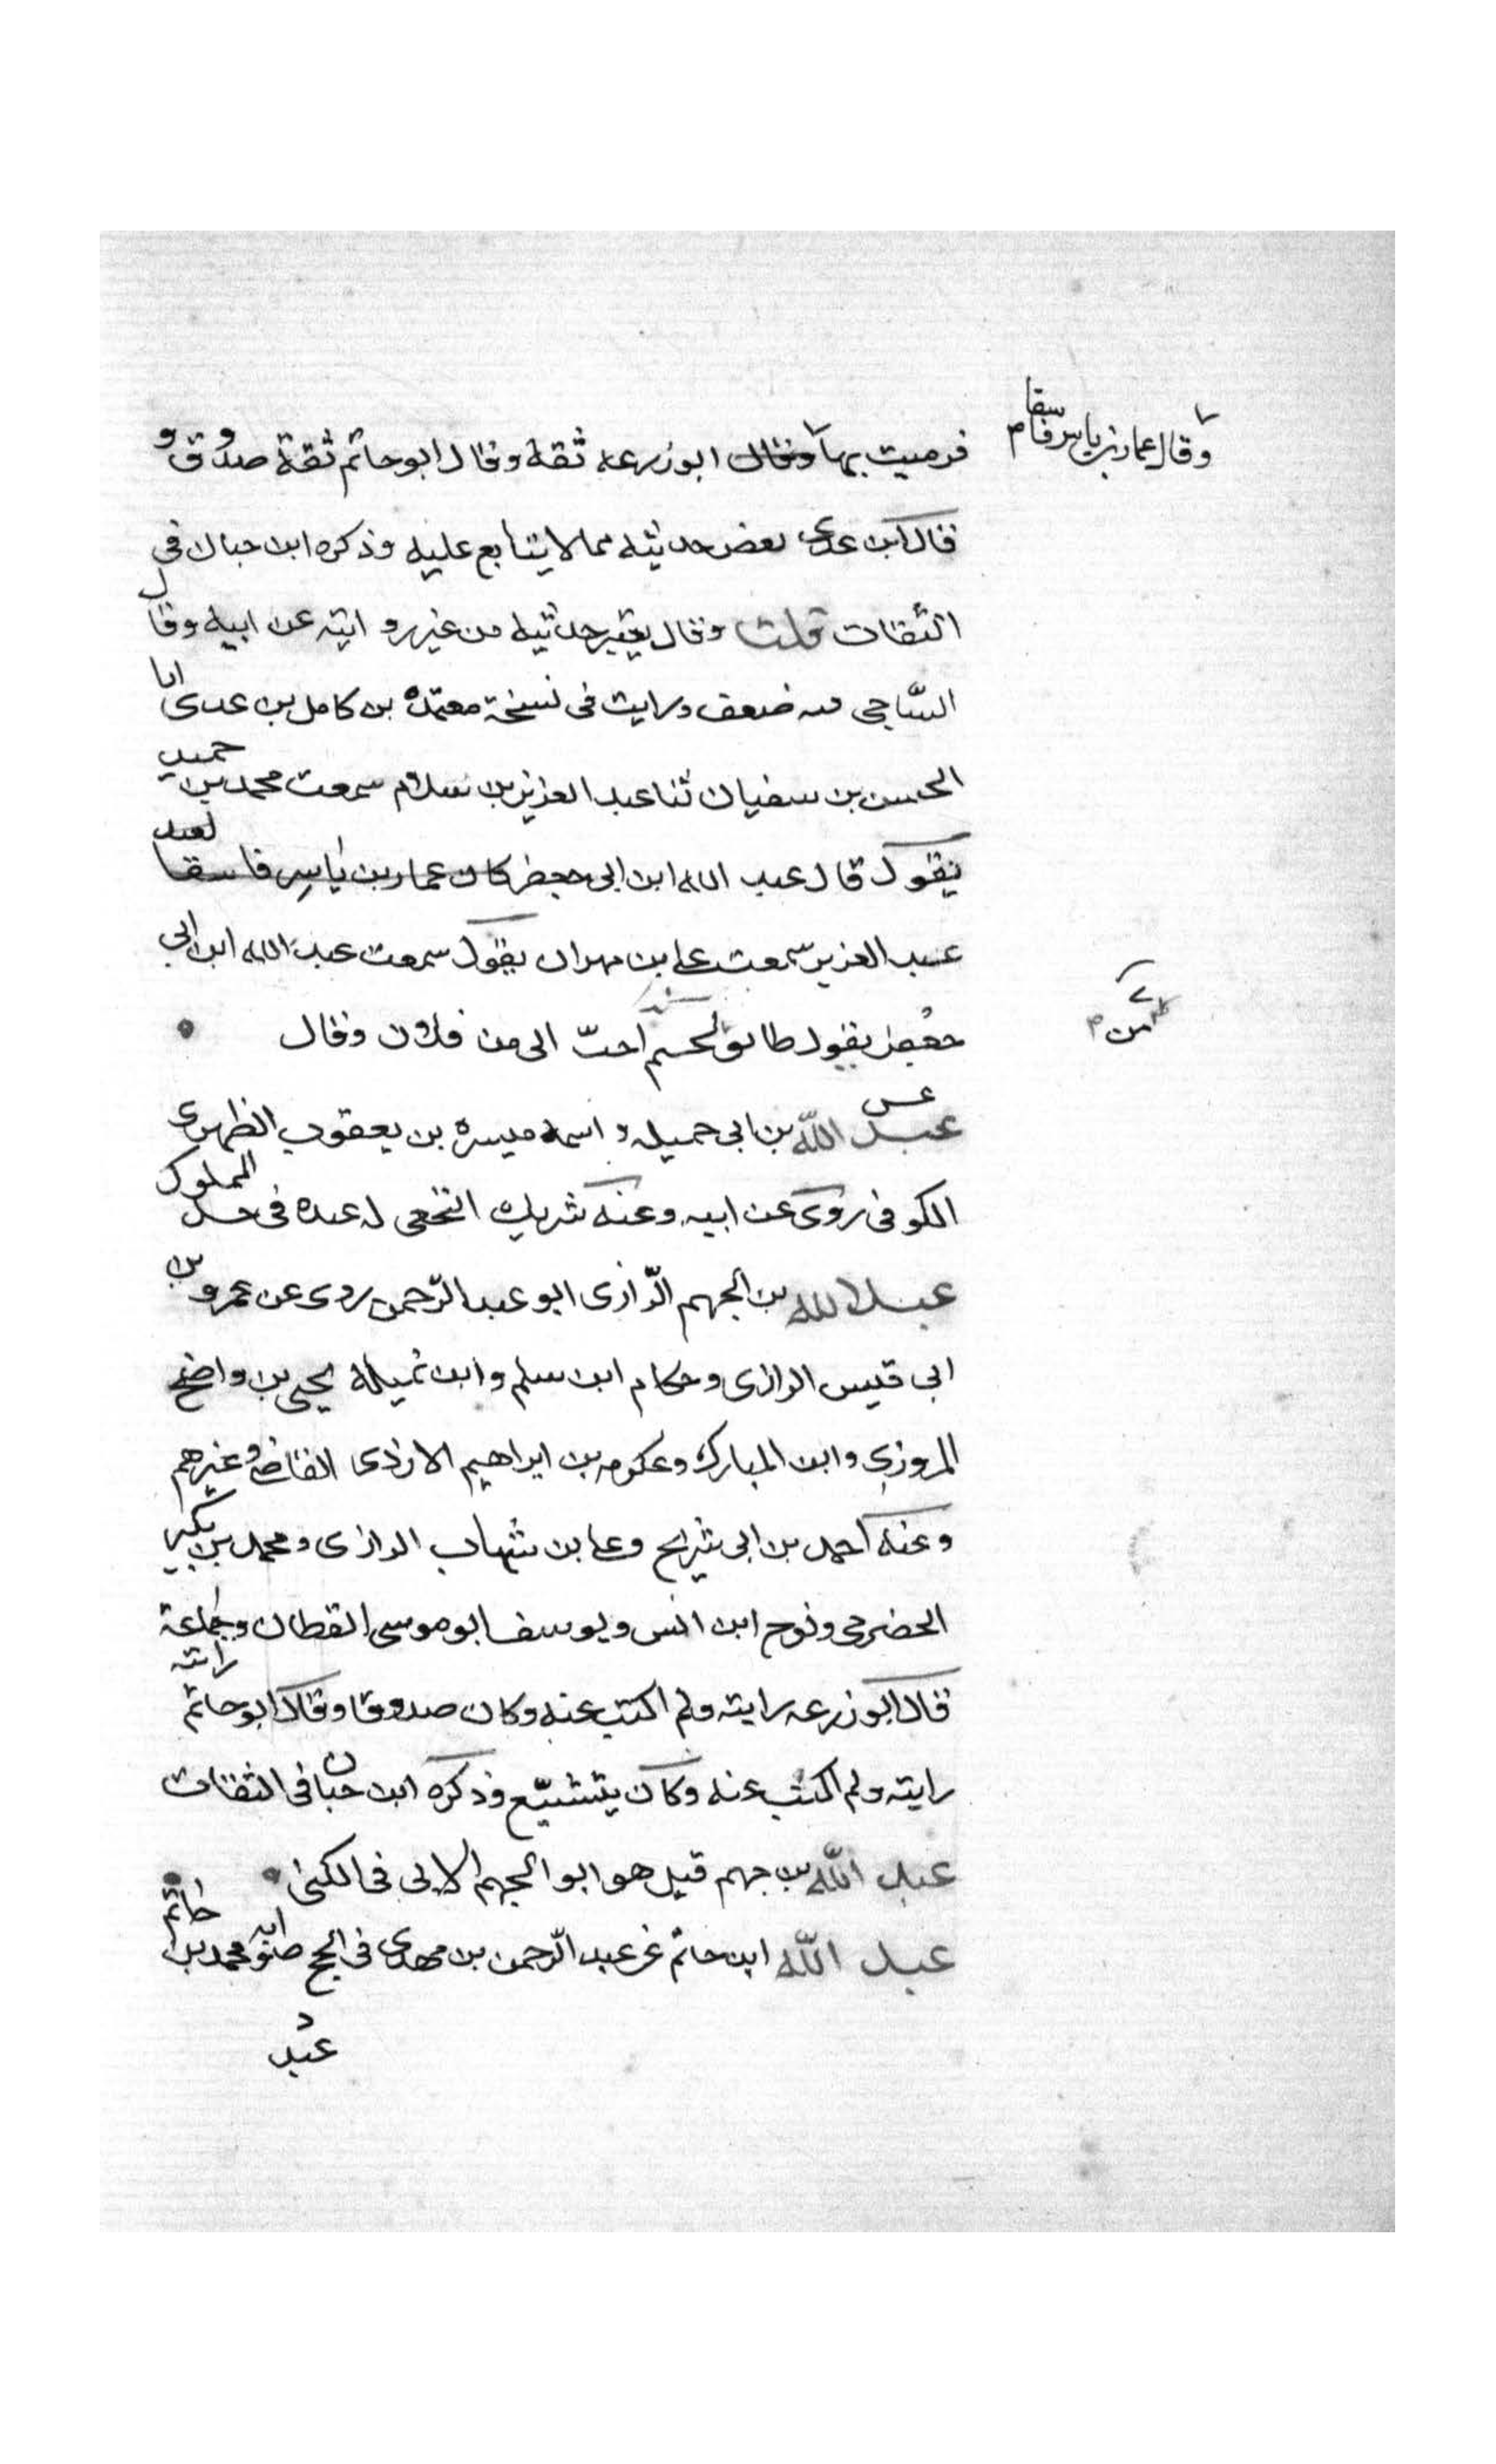 وقال عمار بن ياسر فاسقا م
فرميت بها وقال ابو زرعه ثقة وقال ابو حاتم ثقة صدوق و
قال ابن عدى بعض حديثه مما لا يتابع عليه وذكره ابن حبان فى
الثقات قلت وقال يعتبر حديثه من غير روايته عن ابيه وقال
السّاجى فيه ضعف ورايت فى نسخة معتمدة من كامل بن عدى انا
الحسن بن سفيان ثنا عبد العزيز بن سلام سمعت محمد بن حميد
يقول قال عبد الله ابن ابى جعفر كان عمار بن ياسر فاسقا
عبد العزيز سمعت على بن مهران يقول سمعت عبد الله ابن ابى
جعفر يقول طابق لحم احبّ الى من فلان وقال
من م
عس
عبد الله بن ابى جميله واسمه ميسرة بن يعقوب الطهوى
الكوفى روى عن ابيه وعنه شريك النخعى له عنده فى حد المملوك
عبد الله بن الجهم الرّازى ابو عبد الرّحمن روى عن عمرو بن
ابى قيس الرازى وحكام ابن سلم وابن تميلة يحيى بن واضح
المروزى وابن المبارك وعكرمه بن ابراهيم الازدى القاضى وغيرهم
وعنه احمد بن ابى شريح وعلى بن شهاب الرازى ومحمد بن بكير
الحضرمى ونوح ابن انس ويوسف ابو موسى القطان وجماعة
قال ابو زرعه رايته ولم اكتب عنه وكان صدوقا وقال ابو حاتم رايته
رايته ولم اكتب عنه وكان يتشيّع وذكره ابن حبان فى الثقات
عبد الله بن جهم قيل هو ابو الجهم الاتى فى الكنى
عبد الله ابن حاتم عن عبد الرّحمن بن مهدى فى الحج صوابه محمد بن حاتم
عبد